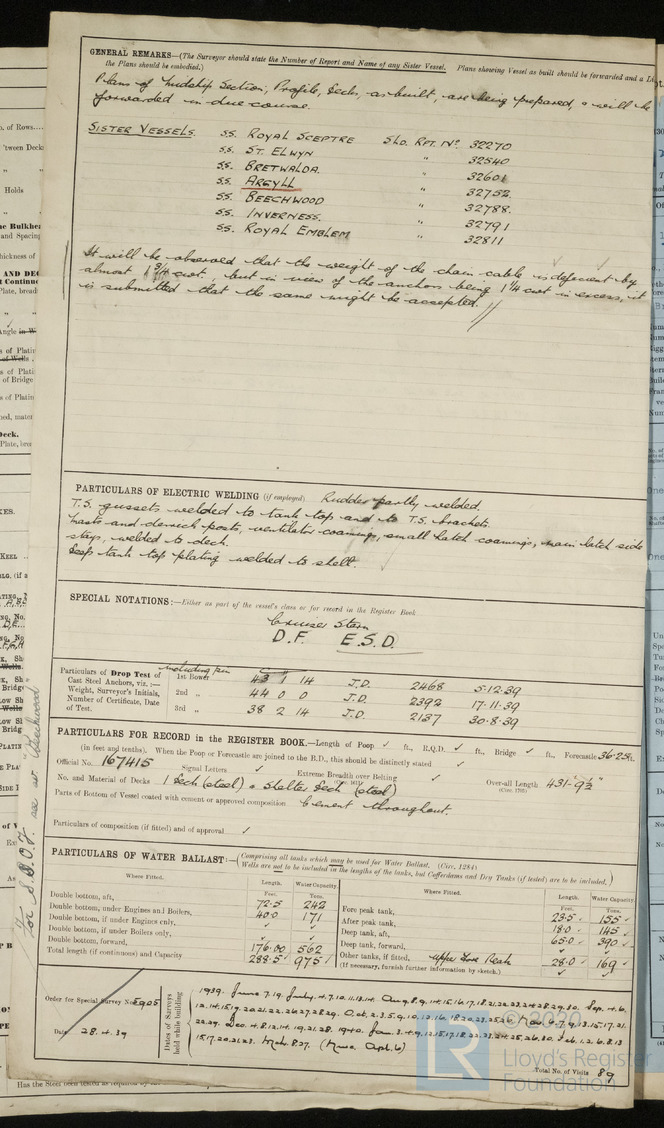 GENERAL REMARKS—(The Surveyor should state the Number of Report and Name of any Sister Vessel. Plans showing Vessel as built should be forwarded and a
the Plans should be embodied.)
Plans of Midship Section, Profile, Decks, as built, are being prepared, & will be
forwarded in due course.
SISTER VESSELS. SS. ROYAL SCEPTRE Sld. Rpt. No. 32270
SS. ST. ELWYN " 32540
SS. BRETWALDA. " 32601
SS. ARGYLL " 32752.
SS. BEECHWOOD " 32788.
SS. INVERNESS. " 32791
SS. ROYAL EMBLEM " 32811
It will be observed that the weight of the chain cable is deficient by
almost 1 3/4 cwt., but in view of the anchors being 1 1/4 cwt in excess, it
is submitted that the same might be accepted.
PARTICULARS OF ELECTRIC WELDING (if employed) Rudder partly welded.
T.S. gussets welded to tank top and to T.S. brackets.
Masts and derrick posts, ventilator coamings, small hatch coamings, main hatch side
stays, welded to deck.
Deep tank top plating welded to shell.
SPECIAL NOTATIONS:—Either as part of the vessel's class or for record in the Register Book
Cruiser Stern
D.F. E.S.D.
Particulars of Drop Test of
Cast Steel Anchors, viz.:—
Weight, Surveyor's Initials,
Number of Certificate, Date
of Test.
including pin
1st Bower 43 1 14 J.D. 2468 5.12.39
2nd " 44 0 0 J.D. 2392 17.11.39
3rd " 38 2 14 J.D. 2137 30.8.39
PARTICULARS FOR RECORD in the REGISTER BOOK.—Length of Poop ✓ ft., R.Q.D. ✓ ft., Bridge ✓ ft., Forecastle 36.25 ft.
(in feet and tenths). When the Poop or Forecastle are joined to the B.D., this should be distinctly stated ✓
Official No. 167415 Signal Letters ✓ Extreme Breadth over Belting ✓ Over-all Length 431-9½"
No. and Material of Decks 1 Deck (steel) & Shelter Deck (steel)
Parts of Bottom of Vessel coated with cement or approved composition Cement throughout.
Particulars of composition (if fitted) and of approval ✓
PARTICULARS OF WATER BALLAST:—(Comprising all tanks which may be used for Water Ballast. (Circ. 1284)
Wells are not to be included in the lengths of the tanks, but Cofferdams and Dry Tanks (if tested) are to be included.)
Where Fitted. Length. Water Capacity. Where Fitted. Length. Water Capacity.
Feet. Tons. Feet. Tons.
Double bottom, aft, 72.5 242 Fore peak tank, 23.5 155
Double bottom, under Engines and Boilers, 40.0 171 After peak tank, 18.0 145
Double bottom, if under Engines only, ✓ ✓ Deep tank, aft, 65.0 390
Double bottom, if under Boilers only, ✓ ✓ Deep tank, forward, ✓ ✓
Double bottom, forward, 176.00 562 Other tanks, if fitted, Upper Fore Peak 28.0 169
Total length (if continuous) and Capacity 288.5 975 (If necessary, furnish further information by sketch.) ✓ ✓
Order for Special Survey No. 5905
Date 28.4.39
Dates of Surveys
held while building
Total No. of Visits 89
© 2020
LR
Lloyd's Register
Foundation